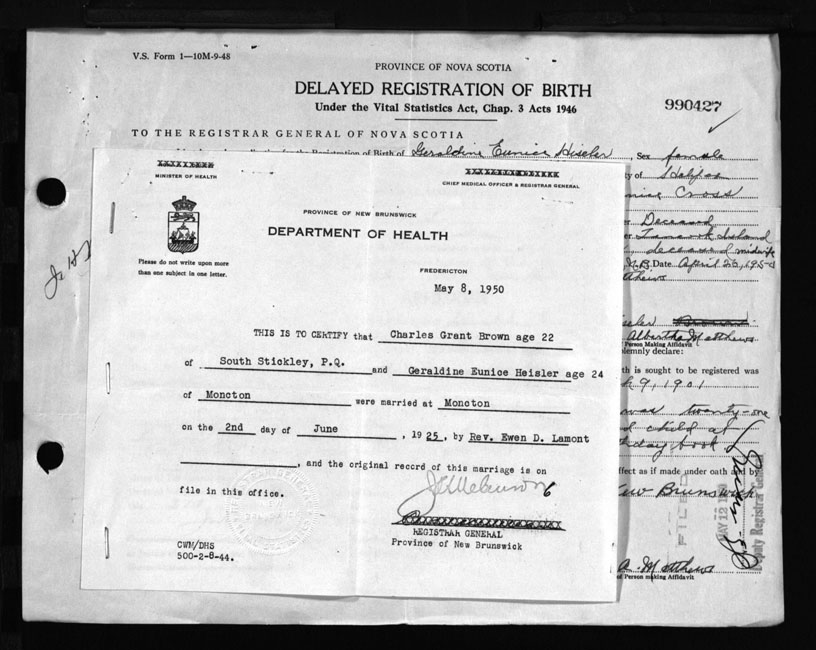 V.S. Form 1—10M-9-48
PROVINCE OF NOVA SCOTIA
DELAYED REGISTRATION OF BIRTH
Under the Vital Statistics Act, Chap. 3 Acts 1946
990427
TO THE REGISTRAR GENERAL OF NOVA SCOTIA
Registration of Birth of Geraldine Eunice Hiseler, Sex female
of Halifax
Cross
Deceased
Tancook Island
deceased midwife
N.B. Date April 22, 195
MINISTER OF HEALTH
CHIEF MEDICAL OFFICER & REGISTRAR GENERAL
PROVINCE OF NEW BRUNSWICK
DEPARTMENT OF HEALTH
Please do not write upon more
than one subject in one letter.
FREDERICTON
May 8, 1950
THIS IS TO CERTIFY that Charles Grant Brown age 22
of South Stickley, P.Q. and Geraldine Eunice Heisler age 24
of Moncton were married at Moncton
on the 2nd day of June, 1925, by Rev. Ewen D. Lamont
, and the original record of this marriage is on
file in this office.
REGISTRAR GENERAL
Province of New Brunswick
CWM/DHS
500-2-8-44.
Albertha Matthews
Person Making Affidavit
solemnly declare:
th is sought to be registered was
9, 1901
was twenty-one
child at
day book
ffect as if made under oath and by
New Brunswick
FILED
MAY 12 19
Deputy Registrar General
A. Matthews
of Person making Affidavit